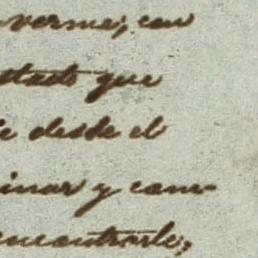 verme, con
stado que
e desde el
inar y cam-
encontrarle,